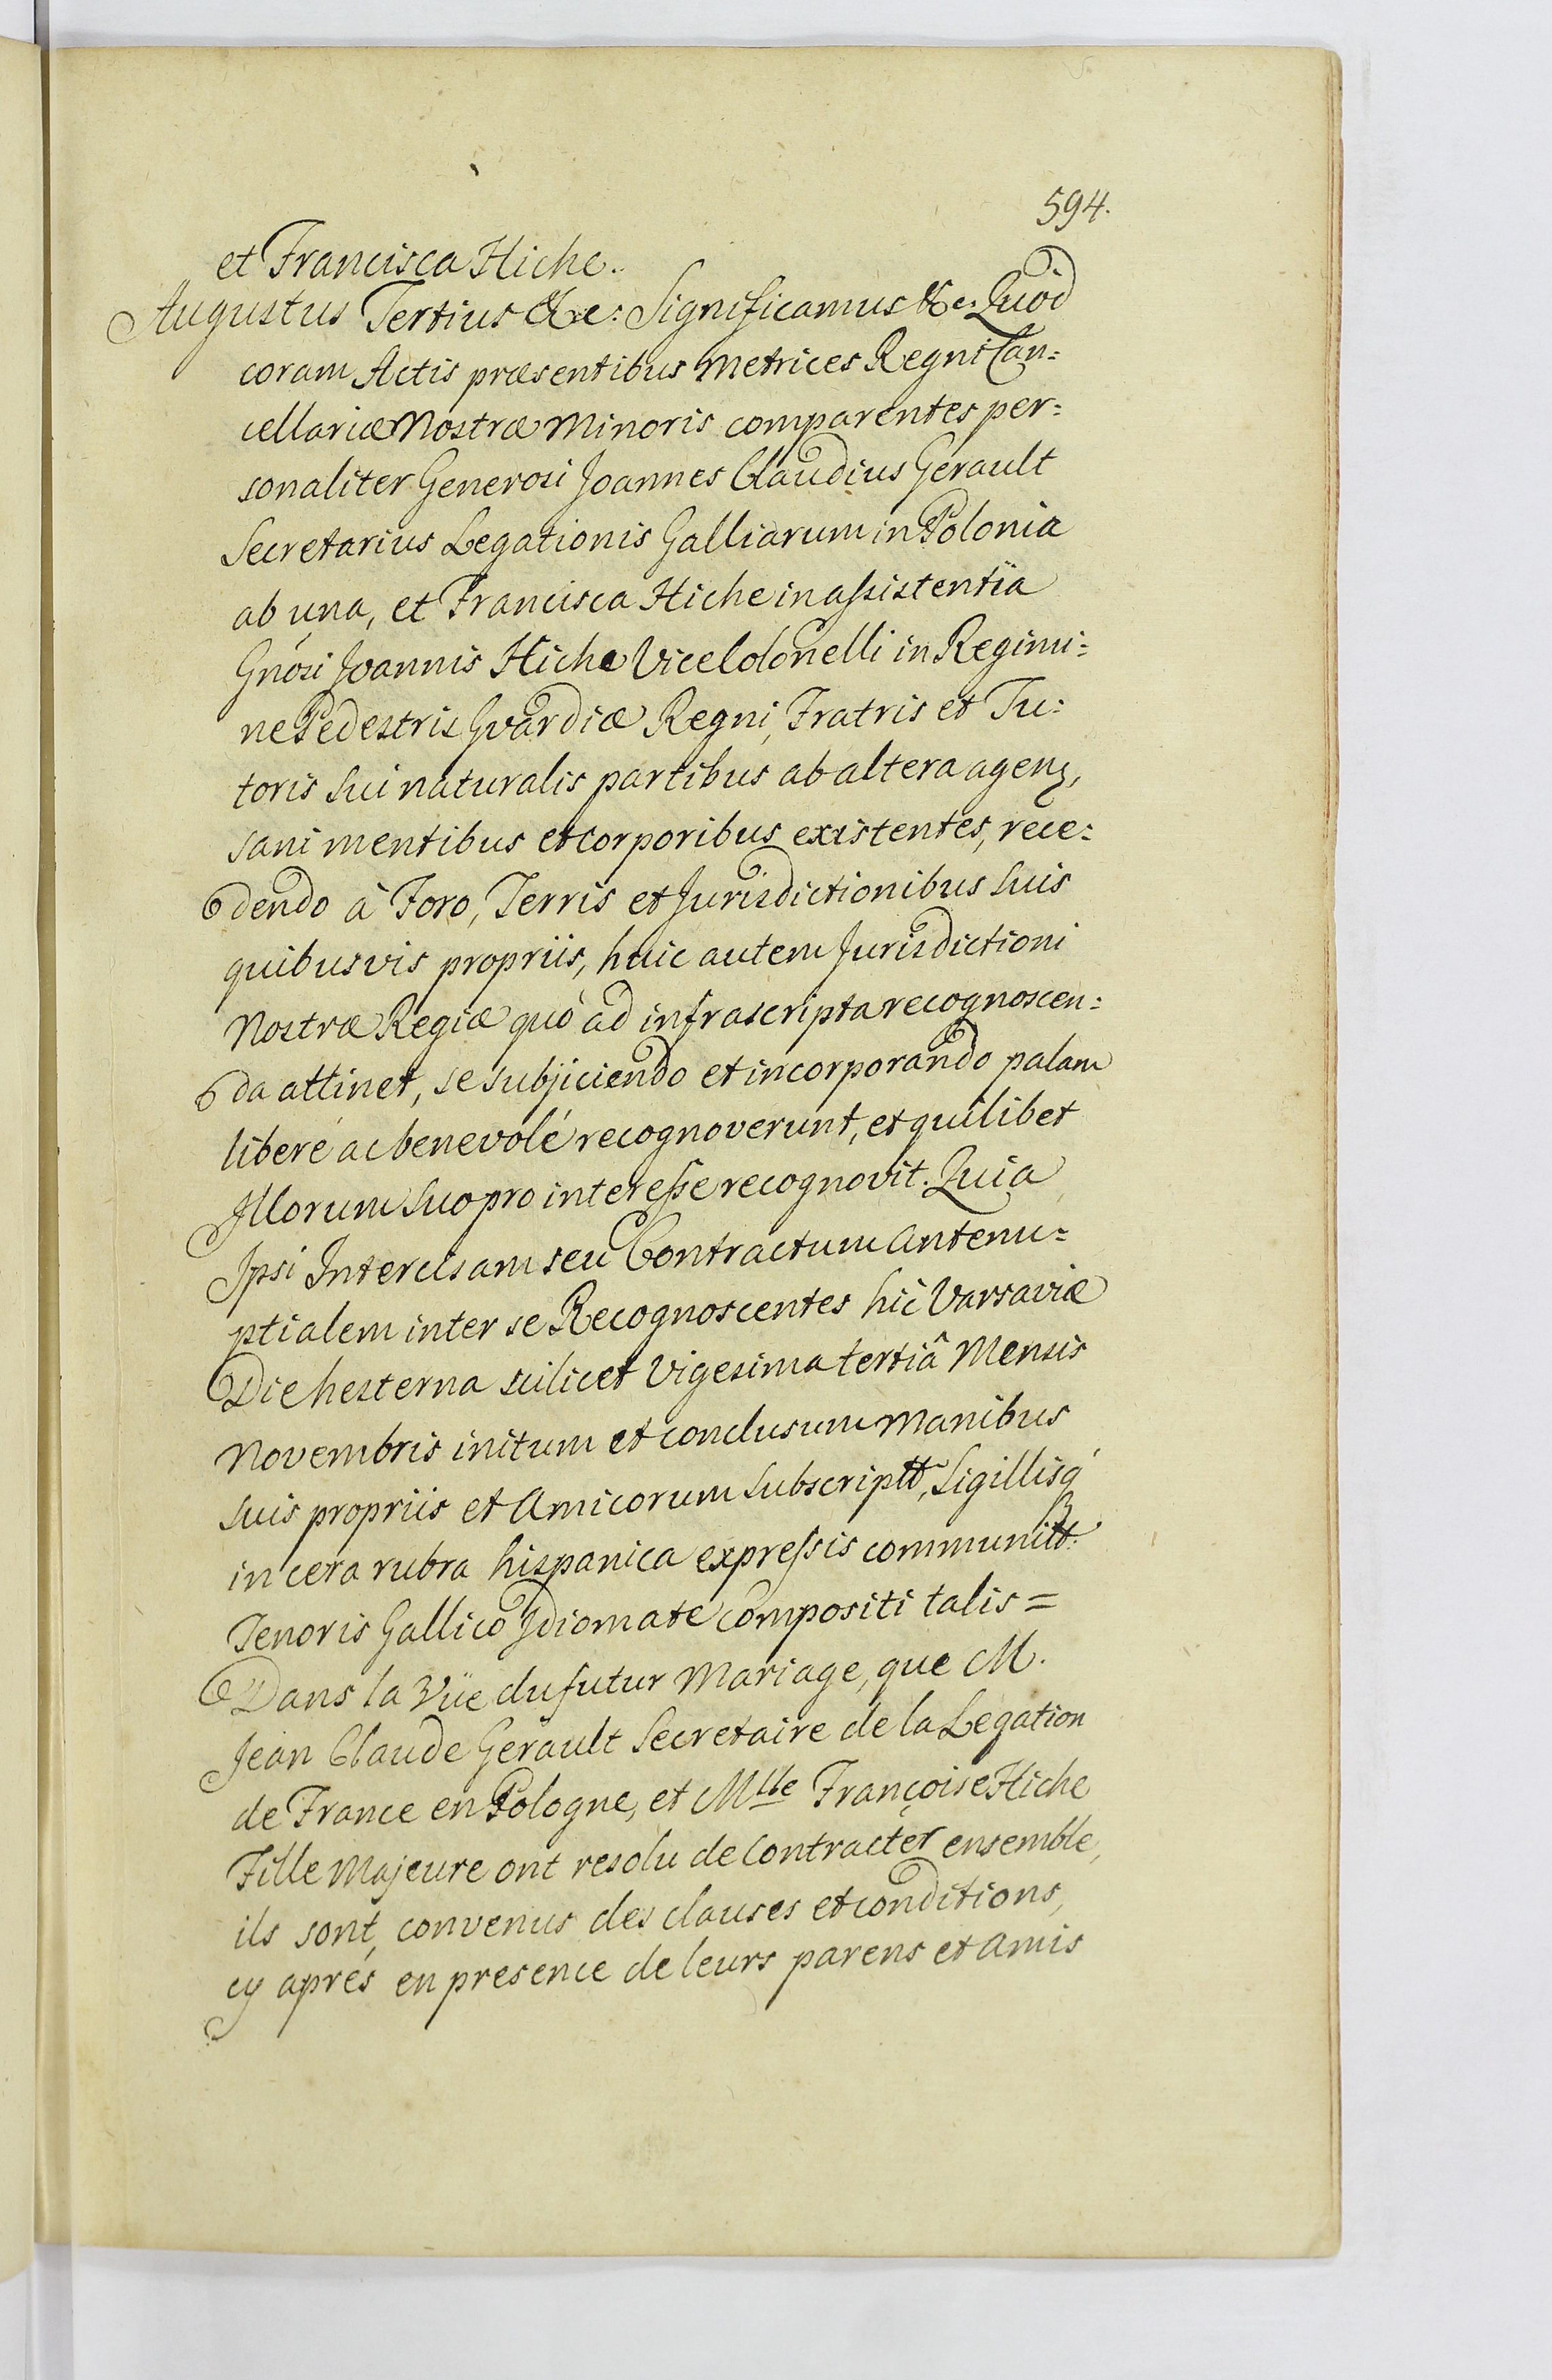 594.
et Francisca Hiche.
Augustus Tertius &c: Significamus &c: Quod
coram Actis præsentibus Metrices Regni Can:
cellariæ Nostræ Minoris comparentes per:
sonaliter Generosi Joannes Claudius Gerault
Secretarius Legationis Galliarum in Polonia
ab una, et Francisca Hiche in assistentia
Gnosi Joannis Hiche ViceColonelli in Regimi:
ne Pedestris Gvardiæ Regni, Fratris et Tu:
toris sui naturalis partibus ab altera agens,
sani mentibus et corporibus existentes, rece:
dendo à Foro, Terris et Jurisdictionibus suis
quibusvis propriis, huic autem Jurisdictioni
Nostræ Regiæ quò ad infrascripta recognoscen:
da attinet, se subjiciendo et incorporando palam
liberé ac benevolé recognoverunt, et quilibet
Illorum suo pro interesse recognovit. Quia
Ipsi Intercisam seu Contractum Antenu:
ptialem inter se Recognoscentes hic Varsaviæ
Die hesterna scilicet vigesima tertiâ Mensis
Novembris initum et conclusum Manibus
suis propriis et Amicorum subscriptt, Sigillisq́
in cera rubra hispanica expressis communitt:
Tenoris Gallico Idiomate compositi talis =
Dans la Vüe du futur Mariage, que M.
Jean Claude Gerault Secretaire de la Legation
de France en Pologne, et Mlle Françoise Hiche
Fille Majeure ont resolu de Contracter ensemble,
ils sont, convenus des clauses et conditions,
cy aprés en presence de leurs parens et Amis